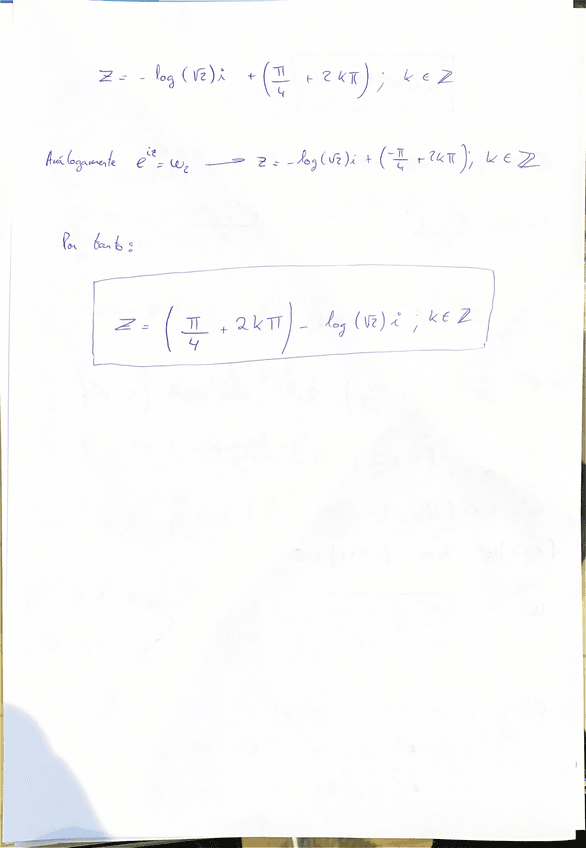 Z = - log (√2) i + (π/4 + 2kπ) ; k ∈ ℤ
Análogamente e^{iz} = w₂ → z = - log(√2) i + (-π/4 + 2kπ); k ∈ ℤ
Por tanto:
Z = (π/4 + 2kπ) - log (√2) i ; k ∈ ℤ